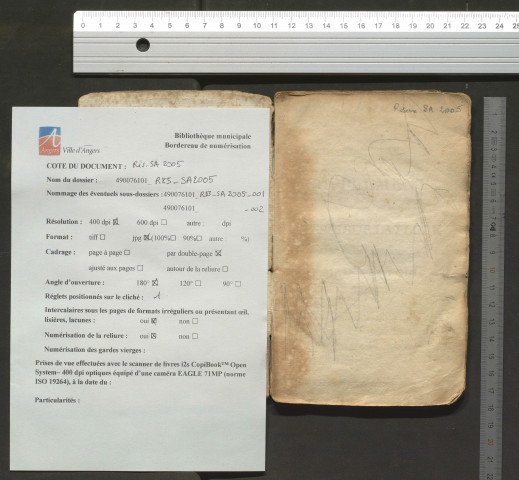 0 1 2 3 4 5 6 7 8 9 10 11 12 13 14 15 16 17 18 19 20 21 22 23 24 25
Bibliothèque municipale
Bordereau de numérisation
Angers
Ville d'Angers
COTE DU DOCUMENT : Rés. SA 2005
Nom du dossier : 490076101_RES_SA2005
Nommage des éventuels sous-dossiers : 490076101_RES_SA2005_001
490076101_ _002
Résolution : 400 dpi ☒ 600 dpi ☐ autre : dpi
Format : tiff ☐ jpg ☒ (100%☐ 90%☐ autre %)
Cadrage : page à page ☐ par double-page ☒
ajusté aux pages ☐ autour de la reliure ☐
Angle d'ouverture : 180° ☒ 120° ☐ 90° ☐
Réglets positionnés sur le cliché : 1
Intercalaires sous les pages de formats irréguliers ou présentant œil,
lisières, lacunes : oui ☒ non ☐
Numérisation de la reliure : oui ☒ non ☐
Numérisation des gardes vierges :
Prises de vue effectuées avec le scanner de livres i2s CopiBook™ Open
System– 400 dpi optiques équipé d'une caméra EAGLE 71MP (norme
ISO 19264), à la date du :
Particularités :
SA 2005